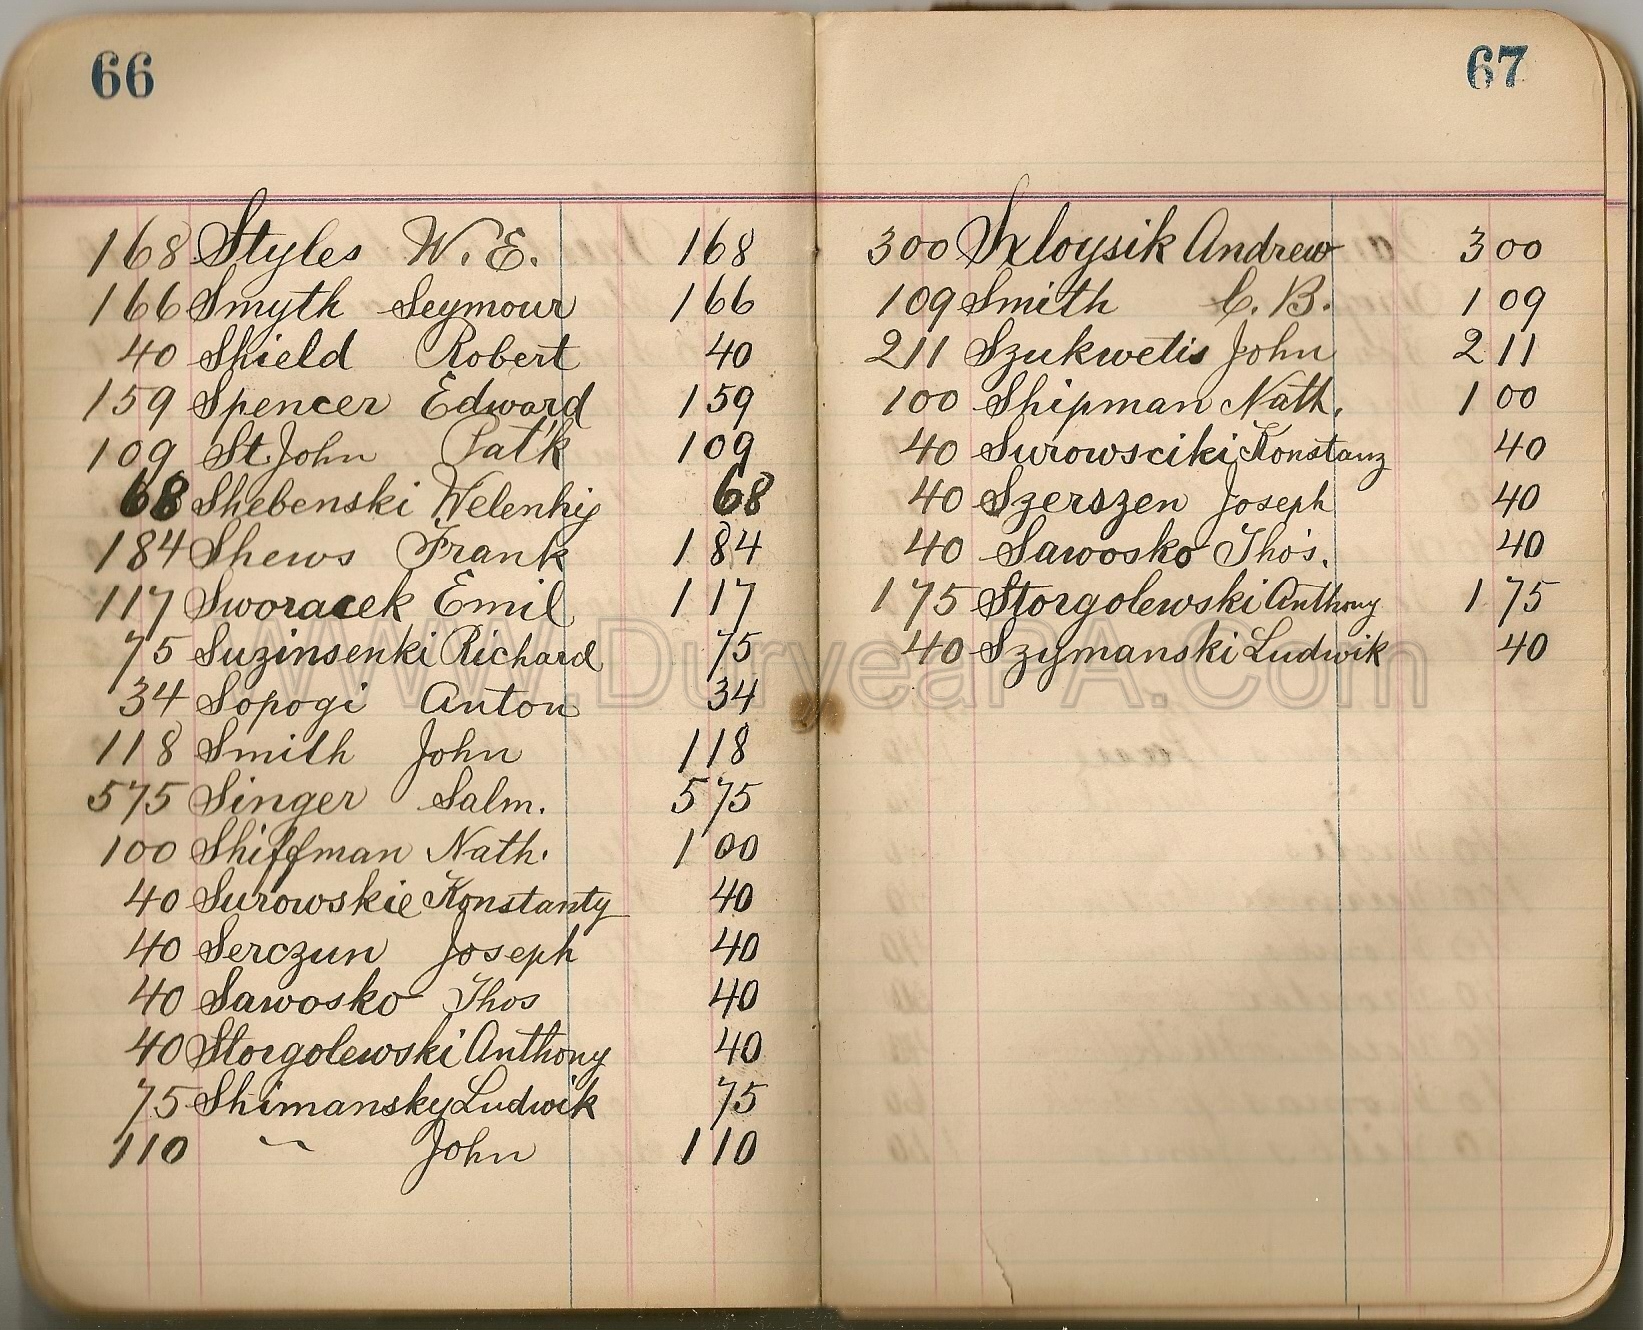 66
168 Styles W. E. 168
166 Smyth Seymour 166
40 Shield Robert 40
159 Spencer Edward 159
109 St John Pat'k 109
68 Shebenski Welenhy 68
184 Shews Frank 184
117 Sworacek Emil 117
75 Suzinsenki Richard 75
34 Sopogi Anton 34
118 Smith John 118
575 Singer Salm. 575
100 Shiffman Nath. 100
40 Surowskie Konstanty 40
40 Serczun Joseph 40
40 Sawosko Thos 40
40 Storgolewski Anthony 40
75 Shimansky Ludwik 75
110 〃 John 110
67
300 Andrew 300
109 Smith C. B. 109
211 Szukwetis John 211
100 Shipman Nath. 100
40 Surowsciki Konstanz 40
40 Szerszen Joseph 40
40 Sawosko Tho's. 40
175 Storgolewski Anthony 175
40 Szymanski Ludwik 40
WWW.DuryeaPA.Com